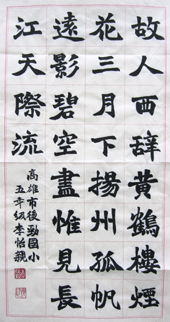 故人西辞黃鶴樓煙
花三月下揚州孤帆
遠影碧空盡惟見長
江天際流
高雄市後勁國小
五年級李怡